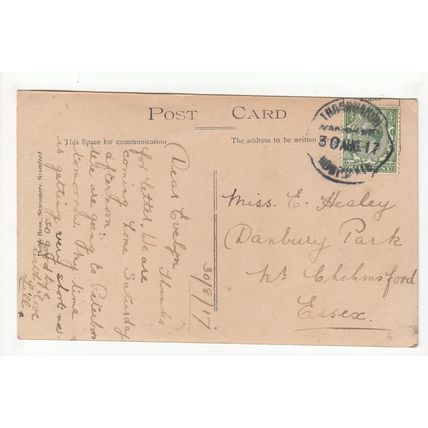 POST CARD
This Space for communication
The address to be written
30/8/17
Dear Evelyn Thanks
for letter. We are
coming home Saturday
afternoon.
We are going to Peterboro
tomorrow. My time
is getting very short now
so goodbye
love
Bros., Stationers, Stamford
30 AUG 17
Miss. E. Healey
Danbury Park
Nr Chelmsford
Essex.